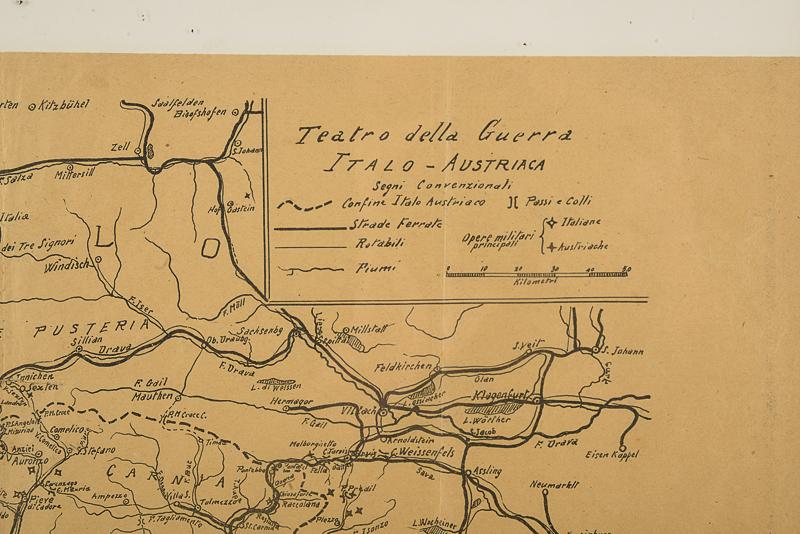 Kitzbühel
Saalfelden
Bischofshofen
Zell
S. Johann
Mittersill
Salza
Hof Gastein
Italia
dei Tre Signori
L O
Windisch
F. Isel
F. Möll
Teatro della Guerra
ITALO - AUSTRIACA
Segni Convenzionali
Confine Italo Austriaco
Passi e Colli
Strade Ferrate
Rotabili
Fiumi
Opere militari principali
Italiane
Austriache
0 10 20 30 40 50
Kilometri
PUSTERIA
Sillian
Drava
Sachsenbg
Millstatt
S. Veit
S. Johann
Innichen
Sexten
F. Drava
L. di Weissen
Feldkirchen
Glan
Gurk
F. Gail
Mauthen
Hermagor
Villach
L. Ossiacher
Klagenfurt
L. Wörther
F. Gail
S. Jacob
F. Drava
Eisen Kappel
Comelico
S. Stefano
Arnoldstein
Malborghetto
C. Tarvis
C. Weissenfels
Timau
Pontebba
Sava
Assling
Neumarktl
CARNIA
Auronzo
Ampezzo
Villa S.
Tolmezzo
Raccolana
Predil
Pieve di Cadore
F. Tagliamento
Plezzo
F. Isonzo
L. Wocheiner